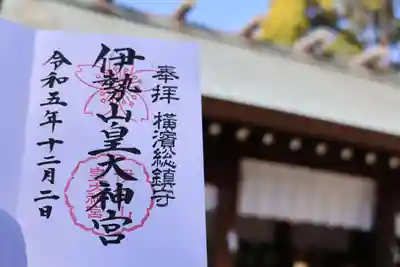 奉拝 横濱総鎮守
伊勢山皇大神宮
令和五年十二月二日